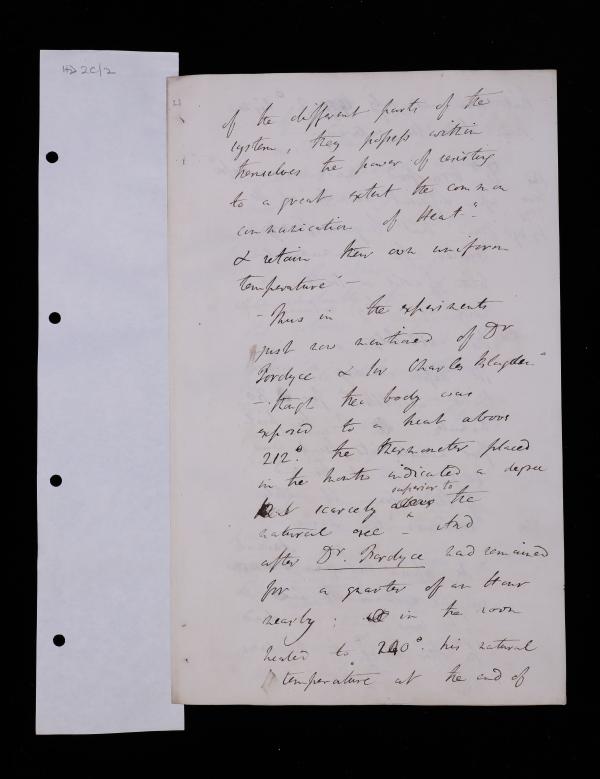 HD 2C/2
of the different parts of the
system, they possess within
themselves the power of resisting
to a great extent the common
communication of Heat"
& retain their own uniform
temperature" —
- Thus in the experiments
just now mentioned of Dr
Fordyce & Sir Charles Blagden"
- though the body was
exposed to a heat above
212°. the thermometer placed
in the mouth indicated a degree
scarcely above the
superior to
natural one" - And
after Dr. Fordyce had remained
for a quarter of an Hour
nearly: in the room
heated to 240°. his natural
temperature at the end of